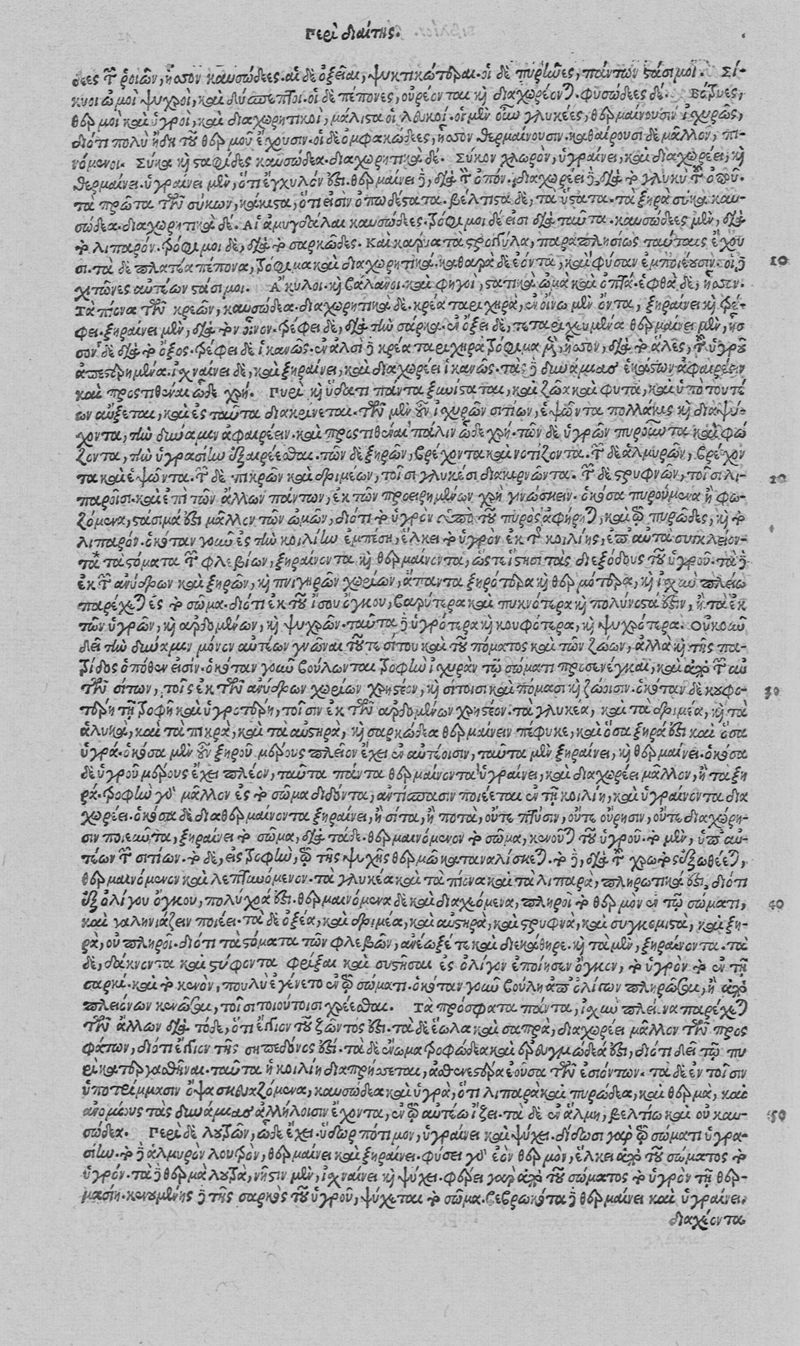 Περὶ διαίτης.
δεες τῶν ῥοιῶν, ἧσον καυσώδεες. αἱ δὲ ὀξεῖαι, ψυκτικώτεραι. οἱ δὲ πυρῆνες, πάντων στάσιμοι. Σί-
κυοι ὠμοὶ ψυχροὶ, καὶ δύσπεπτοι. οἱ δὲ πέπονες, οὐρέονται καὶ διαχωρέονται. φυσώδεες δέ. Βότρυες,
θερμοὶ καὶ ὑγροὶ, καὶ διαχωρητικοὶ, μάλιστα οἱ λευκοί. οἱ μὲν οὖν γλυκέες, θερμαίνουσιν ἰσχυρῶς,
διότι πολὺ ἤδη τοῦ θερμοῦ ἔχουσιν. οἱ δὲ ὀμφακώδεες, ἧσον θερμαίνουσιν. καθαίρουσι δὲ μᾶλλον, πι-
νόμενοι. Σῦκα καὶ σταφίδες καυσώδεα. διαχωρητικὰ δέ. Σῦκον χλωρὸν, ὑγραίνει, καὶ διαχωρέει, καὶ
θερμαίνει. ὑγραίνει μὲν, ὅτι ἔγχυλόν ἐστι. θερμαίνει δὲ, διὰ τὸν ὀπόν. διαχωρέει δὲ, διὰ τὸ γλυκὺ τοῦ ὀποῦ.
τὰ πρῶτα τῶν σύκων, κάκιστα, ὅτι εἰσὶν ὀπωδέστατα. βέλτιστα δὲ, τὰ ὕστατα. τὰ ξηρὰ σῦκα καυ-
σώδεα. διαχωρητικὰ δέ. Αἱ ἀμυγδάλαι καυσώδεες. τρόφιμοι δέ εἰσι διὰ ταῦτα. καυσώδεες μὲν, διὰ
τὸ λιπαρόν. τρόφιμοι δὲ, διὰ τὸ σαρκῶδες. Καὶ κάρυα τὰ στρογγύλα, παραπλησίως ταύταις ἔχου
σι. τὰ δὲ πλατέα πέπονα, τρόφιμα καὶ διαχωρητικὰ. καθαρὰ δὲ ἐόντα, καὶ φῦσαν ἐμποιέουσιν. οἱ δὲ
10
χιτῶνες αὐτέων στάσιμοι. Ἄκυλοι καὶ βάλανοι καὶ φηγοὶ, στατικὰ ὠμὰ καὶ ὀπτά. ἑφθὰ δὲ, ἧσον.
Τὰ πίονα τῶν κρεῶν, καυσώδεα. διαχωρητικὰ δέ. κρέα ταριχηρὰ, ἐν οἴνῳ μὲν ὄντα, ξηραίνει καὶ τρέ-
φει. ξηραίνει μὲν, διὰ τὸν οἶνον. τρέφει δὲ, διὰ τὴν σάρκα. ἐν ὄξει δὲ, τεταριχευμένα θερμαίνει μὲν, ἧσ
σον δὲ διὰ τὸ ὄξος. τρέφει δὲ ἱκανῶς. ἐν ἁλσὶ δὲ κρέα ταριχηρὰ τρόφιμα μὲν, ἧσον, διὰ τὸ ἅλες, τοῦ ὑγροῦ
ἀπεστερημένα. ἰσχναίνει δὲ, καὶ ξηραίνει, καὶ διαχωρέει ἱκανῶς. τὰς δὲ δυνάμιας ἑκάστων ἀφαιρέειν
καὶ προστιθέναι ὧδε χρή. Πυρὶ καὶ ὕδατι πάντα ξυνίσταται, καὶ ζῶα καὶ φυτὰ, καὶ ὑπὸ τουτέ
ων αὔξεται, καὶ ἐς ταῦτα διακρίνεται. τῶν μὲν οὖν ἰσχυρῶν σιτίων, ἕψωντα πολλάκις καὶ διαψύ-
χοντα, τὴν δύναμιν ἀφαιρέειν. καὶ προστιθέναι πάλιν ὧδε χρή. τῶν δὲ ὑγρῶν πυροῦντα καὶ φώ
ζοντα, τὴν ὑγρασίην ἐξαιρέεσθαι. τῶν δὲ ξηρῶν, βρέχοντα καὶ νοτίζοντα. τῶν δὲ ἁλμυρῶν, βρέχον
τα καὶ ἕψωντα. τῶν δὲ πικρῶν καὶ δριμέων, τοῖσι γλυκέσι διακιρνῶντα. τῶν δὲ στρυφνῶν, τοῖσι λι-
20
παροῖσι. καὶ ἐπὶ τῶν ἄλλων πάντων, ἐκ τῶν προειρημένων χρὴ γινώσκειν. ὁκόσα πυρούμενα ἢ φω-
ζόμενα, στάσιμά ἐστι μᾶλλον τῶν ὠμῶν, διότι τὸ ὑγρὸν ὑπὸ τοῦ πυρὸς ἀφῄρηται, καὶ τὸ πυρῶδες, καὶ τὸ
λιπαρόν. ὁκόταν γοῦν ἐς τὴν κοιλίην ἐμπέσῃ, ἕλκει τὸ ὑγρὸν ἐκ τῆς κοιλίης, ἐφ' αὑτὰ συγκλείον-
τα τὰ στόματα τῶν φλεβίων, ξηραίνοντα καὶ θερμαίνοντα, ὥστε ἵστησι τὰς διεξόδους τοῦ ὑγροῦ. τὰ δὲ
ἐκ τῶν ἀνύδρων καὶ ξηρῶν, καὶ πνιγηρῶν χωρίων, ἅπαντα ξηρότερα καὶ θερμότερα, καὶ ἰσχὺν πλείω
παρέχεται ἐς τὸ σῶμα. διότι ἐκ τοῦ ἴσου ὄγκου, βαρύτερα καὶ πυκνότερα καὶ πολύνοστά ἐστιν, ἢ τὰ ἐκ
τῶν ὑγρῶν, καὶ ἀρδομένων, καὶ ψυχρῶν. ταῦτα δὲ ὑγρότερα καὶ κουφότερα, καὶ ψυχρότερα. Οὔκουν
δεῖ τὴν δύναμιν μόνον αὐτέων γνῶναι τοῦτε σίτου καὶ τοῦ πόματος καὶ τῶν ζώων, ἀλλὰ καὶ τῆς πα-
τρίδος ὁπόθεν εἰσίν. ὁκόταν γοῦν βούλωνται τροφὴν ἰσχυρὰν τῷ σώματι προσενέγκαι, καὶ ἀπὸ τῶν αὐ
τῶν σίτων, τοῖς ἐκ τῶν ἀνύδρων χωρίων χρηστέον, καὶ σίτοισι καὶ πόμασι καὶ ζώοισιν. ὁκόταν δὲ κουφο-
30
τέρῃ τῇ τροφῇ καὶ ὑγροτέρῃ, τοῖσιν ἐκ τῶν ἀρδομένων χρηστέον. τὰ γλυκέα, καὶ τὰ δριμέα, καὶ τὰ
ἁλυκὰ, καὶ τὰ πικρὰ, καὶ τὰ αὐστηρὰ, καὶ σαρκώδεα θερμαίνειν πέφυκε, καὶ ὅσα ξηρά ἐστι καὶ ὅσα
ὑγρά. ὁκόσα μὲν οὖν ξηροῦ μέρους πλεῖον ἔχει ἐν αὐτέοισιν, ταῦτα μὲν ξηραίνει, καὶ θερμαίνει. ὁκόσα
δὲ ὑγροῦ μέρους ἔχει πλέον, ταῦτα πάντα θερμαίνοντα ὑγραίνει, καὶ διαχωρέει μᾶλλον, ἢ τὰ ξη
ρά. τροφὴν γὰρ μᾶλλον ἐς τὸ σῶμα διδόντα, ἀντίσπασιν ποιέεται ἐν τῇ κοιλίῃ, καὶ ὑγραίνοντα δια
χωρέει. ὁκόσα δὲ διαθερμαίνοντα ξηραίνει, ἢ σῖτα, ἢ ποτὰ, οὔτε πτῦσιν, οὔτε οὔρησιν, οὔτε διαχώρη-
σιν ποιεῦντα, ξηραίνει τὸ σῶμα, διὰ τάδε. θερμαινόμενον τὸ σῶμα, κενοῦται τοῦ ὑγροῦ. τὸ μὲν, ὑπ' αὐ-
τέων τῶν σιτίων. τὸ δὲ, εἰς τροφὴν, τῷ τῆς ψυχῆς θερμῷ καταναλίσκεται. τὸ δὲ, διὰ τοῦ χρωτὸς ἐξωθέεται,
θερμαινόμενον καὶ λεπτυνόμενον. τὰ γλυκέα καὶ τὰ πίονα καὶ τὰ λιπαρὰ, πληρωτικά ἐστι, διότι
ἐξ ὀλίγου ὄγκου, πολύχοά ἐστι. θερμαινόμενα δὲ καὶ διαχεόμενα, πληροῖ τὸ θερμὸν ἐν τῷ σώματι,
40
καὶ γαληνιάζειν ποιέει. τὰ δὲ ὀξέα, καὶ δριμέα, καὶ αὐστηρὰ, καὶ στρυφνὰ, καὶ συγκομιστὰ, καὶ ξη-
ρὰ, οὐ πληροῖ. διότι τὰ στόματα τῶν φλεβῶν, ἀνέωξέ τε καὶ διεκάθηρε. καὶ τὰ μὲν, ξηραίνοντα. τὰ
δὲ, δάκνοντα καὶ στύφοντα φρίξαι καὶ συστῆσαι ἐς ὀλίγον ἐποίησεν ὄγκον, τὸ ὑγρὸν τὸ ἐν τῇ
σαρκί. καὶ τὸ κενὸν, πουλὺ ἐγένετο ἐν τῷ σώματι. ὁκόταν γοῦν βούλῃ ἀπ' ὀλίγων πληρῶσαι, ἢ ἀπὸ
πλειόνων κενῶσαι, τοῖσι τοιούτοισι χρέεσθαι. Τὰ πρόσφατα πάντα, ἰσχὺν πλείονα παρέχεται
τῶν ἄλλων διὰ τόδε, ὅτι ἔγγιον τοῦ ζῶντός ἐστι. τὰ δὲ ἕωλα καὶ σαπρὰ, διαχωρέει μᾶλλον τῶν προσ
φάτων, διότι ἔγγιον τῆς σηπεδόνος ἐστί. τὰ δὲ ἔνωμα τροφώδεα καὶ ἐρευγμώδεά ἐστι, διότι δεῖ τῷ πυ
ρὶ κατεργασθῆναι. ταῦτα ἡ κοιλίη διαπρήσσεται, ἀσθενεστέρα ἐοῦσα τῶν ἐσιόντων. τὰ δὲ ἐν τοῖσιν
ὑποτρίμμασιν ὄψα σκευαζόμενα, καυσώδεα καὶ ὑγρὰ, ὅτι λιπαρὰ καὶ πυρώδεα, καὶ θερμὰ, καὶ
ἀνομοίους τὰς δυνάμιας ἀλλήλοισιν ἔχοντα, ἐν τῷ αὐτέῳ ἵζει. τὰ δὲ ἐν ἅλμῃ, βελτίω καὶ οὐ καυ-
50
σώδεα. Περὶ δὲ λουτρῶν, ὧδε ἔχει. ὕδωρ πότιμον, ὑγραίνει καὶ ψύχει. δίδωσι γὰρ τῷ σώματι ὑγρα-
σίην. τὸ δὲ ἁλμυρὸν λουτρὸν, θερμαίνει καὶ ξηραίνει. φύσει γὰρ ἐὸν θερμὸν, ἕλκει ἀπὸ τοῦ σώματος τὸ
ὑγρόν. τὰ δὲ θερμὰ λουτρὰ, νῆστιν μὲν, ἰσχναίνει καὶ ψύχει. φέρει γὰρ ἀπὸ τοῦ σώματος τὸ ὑγρὸν τῇ θερ-
μασίῃ. κενουμένης δὲ τῆς σαρκὸς τοῦ ὑγροῦ, ψύχεται τὸ σῶμα. βεβρωκότα δὲ θερμαίνει καὶ ὑγραίνει.
διαχέοντα